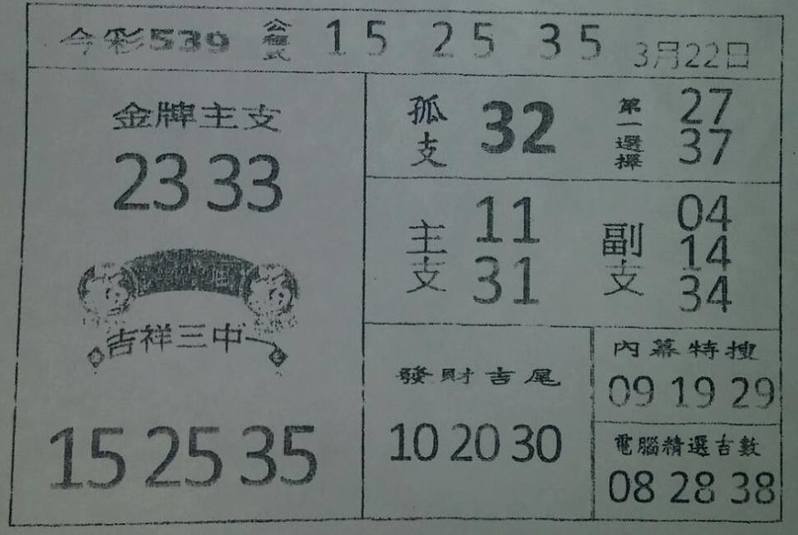 今彩539 公程式 15 25 35 3月22日
金牌主支
23 33
吉祥三中一
15 25 35
孤支 32
第一選擇 27 37
主支 11 31
副支 04 14 34
發財吉尾
10 20 30
內幕特搜
09 19 29
電腦精選吉數
08 28 38